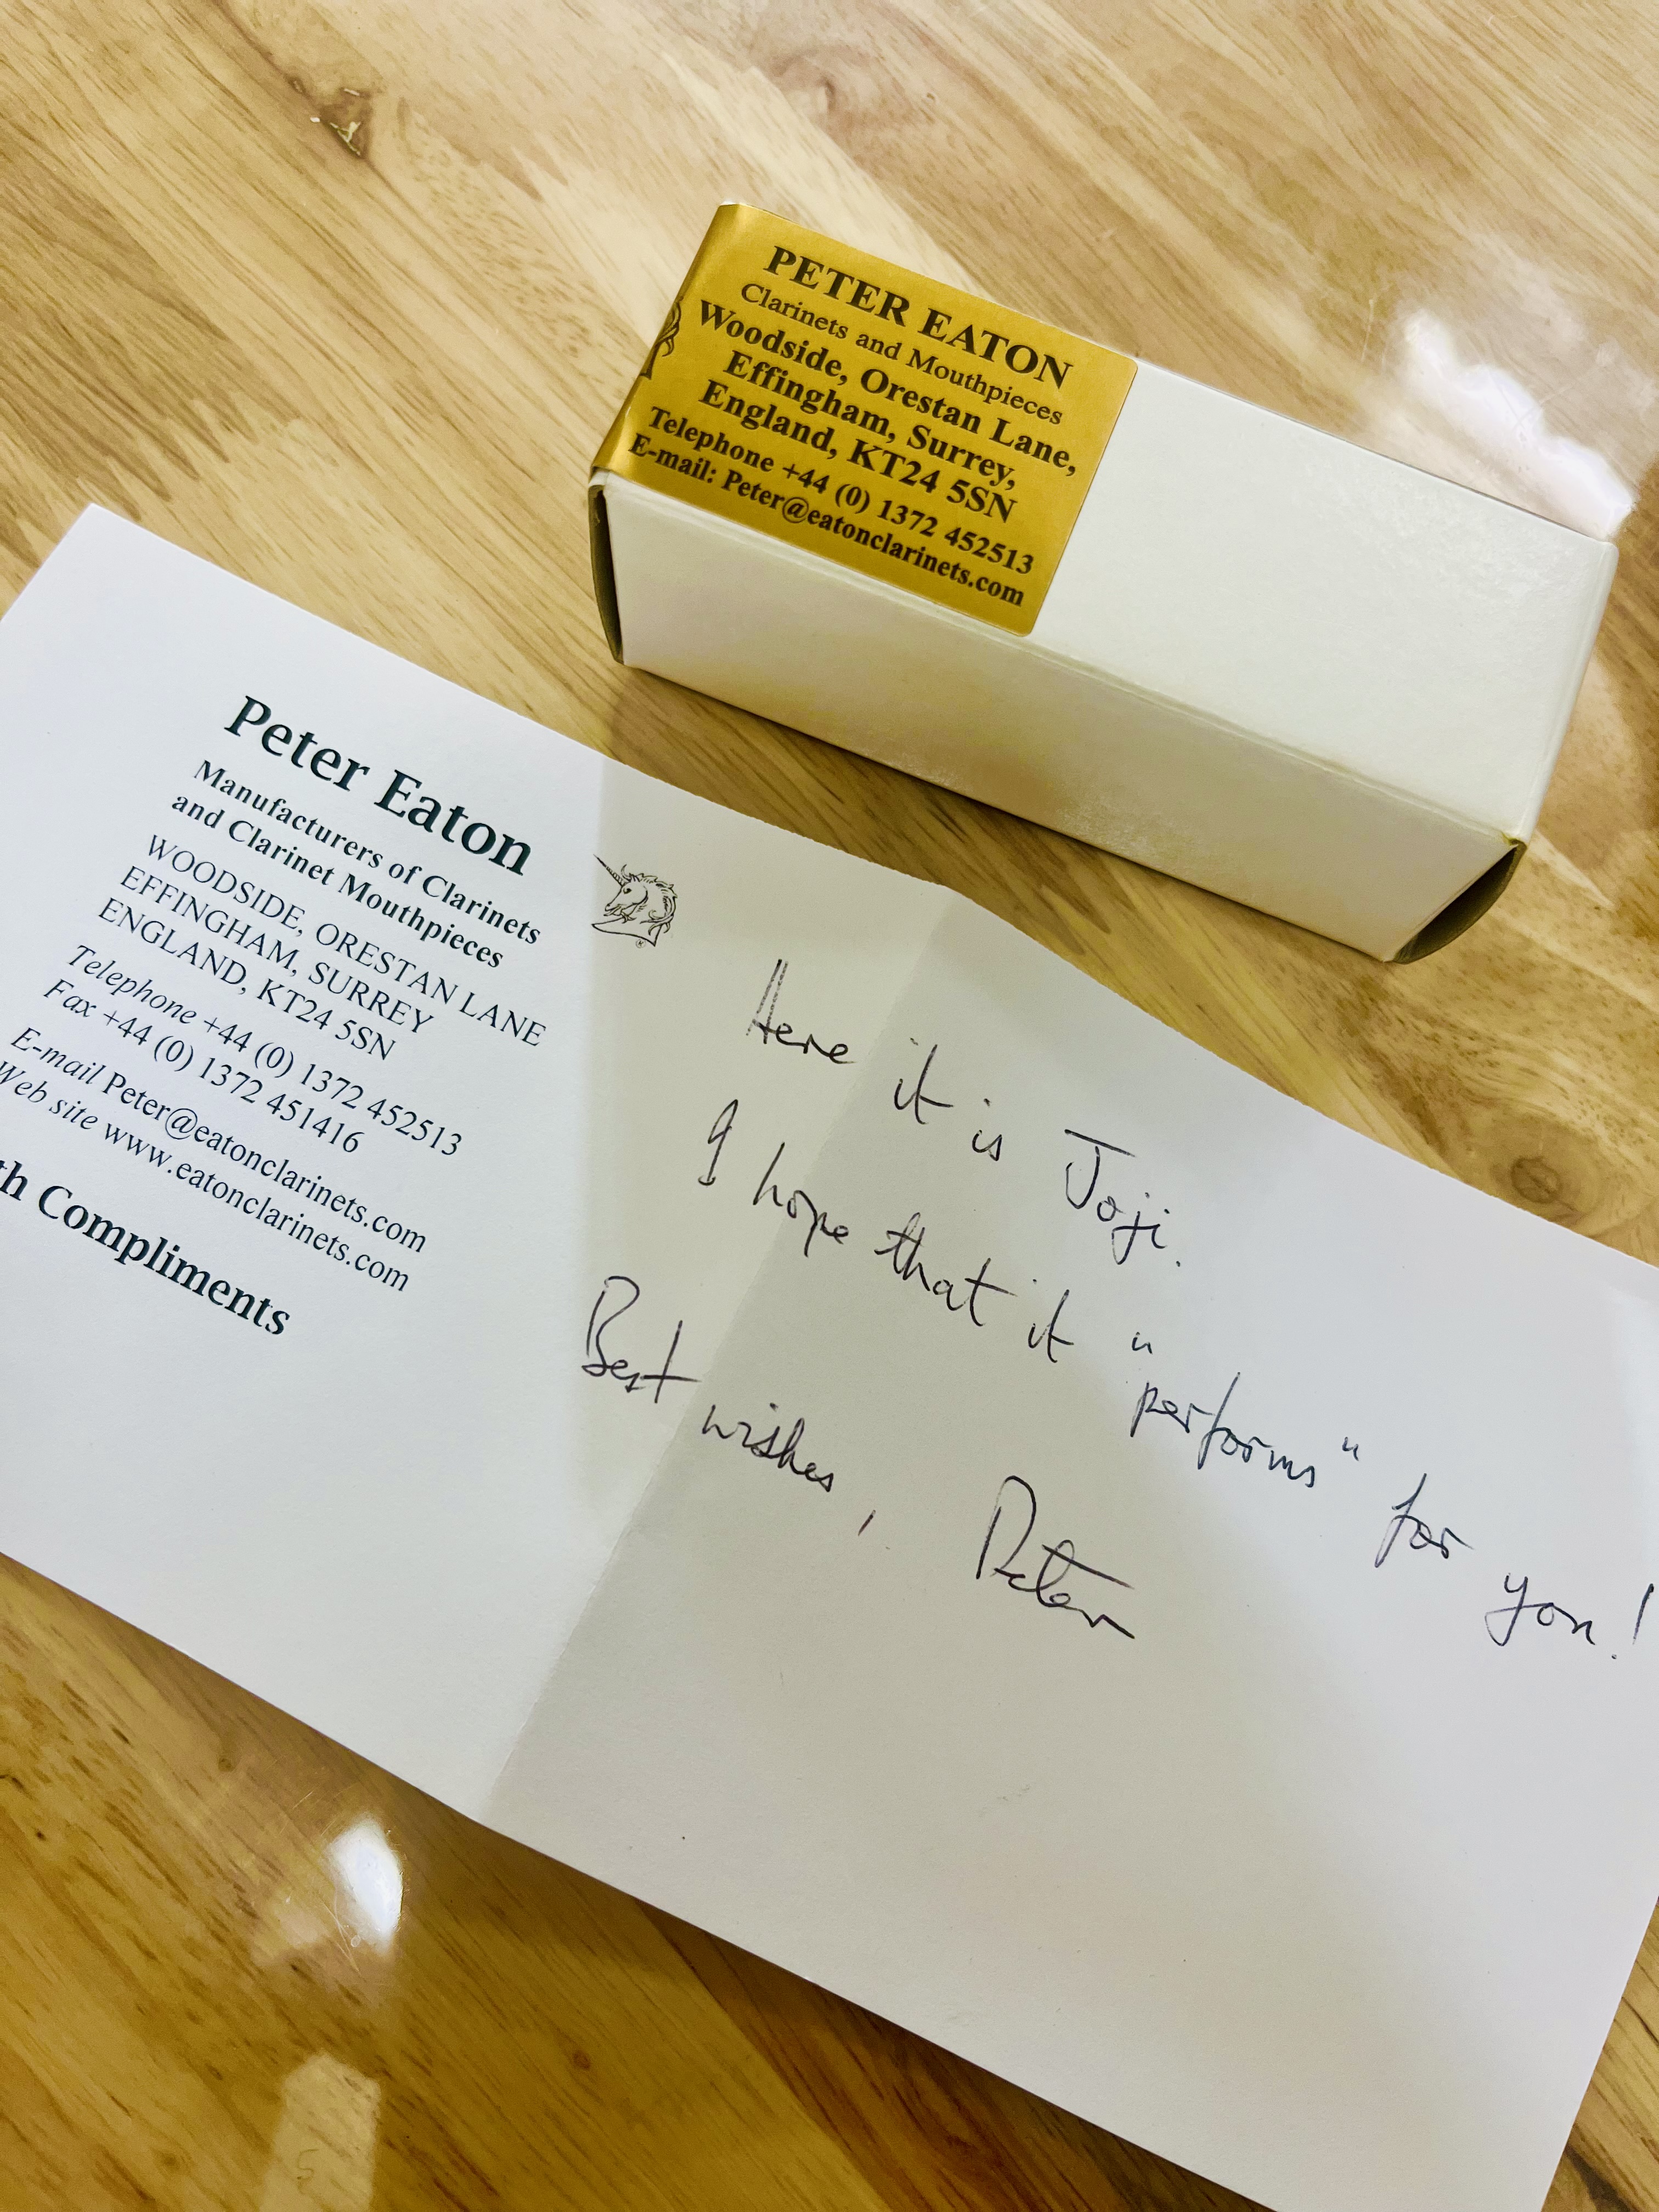 PETER EATON
Clarinets and Mouthpieces
Woodside, Orestan Lane,
Effingham, Surrey,
England, KT24 5SN
Telephone +44 (0) 1372 452513
E-mail: Peter@eatonclarinets.com
Peter Eaton
Manufacturers of Clarinets
and Clarinet Mouthpieces
WOODSIDE, ORESTAN LANE
EFFINGHAM, SURREY
ENGLAND, KT24 5SN
Telephone +44 (0) 1372 452513
Fax +44 (0) 1372 451416
E-mail Peter@eatonclarinets.com
Web site www.eatonclarinets.com
th Compliments
Here it is Joji.
I hope that it "performs" for you!
Best wishes, Peter